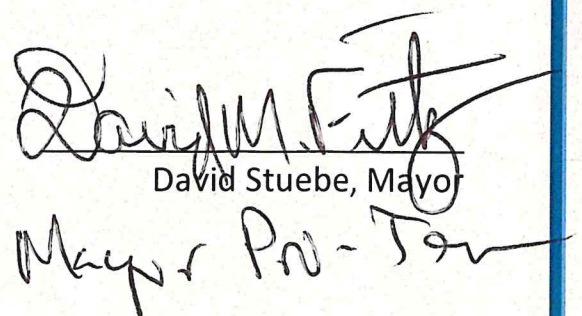 David M. Fitz
David Stuebe, Mayor
Mayor Pro-Tem